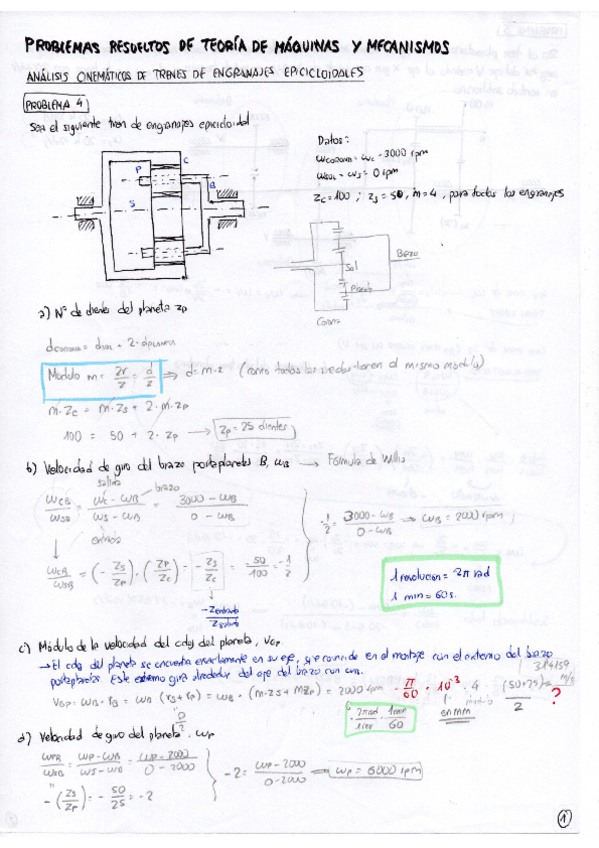 PROBLEMAS RESUELTOS DE TEORÍA DE MÁQUINAS Y MECANISMOS
ANÁLISIS CINEMÁTICOS DE TRENES DE ENGRANAJES EPICICLOIDALES
PROBLEMA 4
Sea el siguiente tren de engranajes epicicloidal
Datos:
ωcorona = ωc = 3000 rpm
ωsol = ωs = 0 rpm
Zc = 100 ; Zs = 50, m = 4, para todos los engranajes
P
C
S
B
Brazo
Sol
Planeta
Corona
a) Nº de dientes del planeta Zp
dcorona = dsol + 2·dplaneta
Módulo m = 2r/Z = d/Z ⇒ d = m·Z (como todas las ruedas tienen el mismo modulo)
m·Zc = m·Zs + 2·m·Zp
100 = 50 + 2·Zp → Zp = 25 dientes
b) Velocidad de giro del brazo portaplanetas B, ωB → Fórmula de Willis
salida
brazo
ωCB/ωSB = (ωc - ωB)/(ωs - ωB) = (3000 - ωB)/(0 - ωB)
entrada
-1/2 = (3000 - ωB)/(0 - ωB) ⇒ ωB = 2000 rpm;
ωCB/ωSB = (-Zs/Zp)·(Zp/Zc) = -Zs/Zc = -50/100 = -1/2
-Zentrada/Zsalida
1 revolucion = 2π rad
1 min = 60 s.
c) Módulo de la velocidad del cdg del planeta, VGP.
→ El cdg del planeta se encuentra exactamente en su eje, que coincide en el montaje con el extremo del brazo
portaplanetas. Este extremo gira alrededor del eje del brazo con ωB.
VGP = ωB·rB = ωB (rs+rp) = ωB·(m·Zs+mZp) = 2000 rpm · π/60 · 10⁻³ · 4 (50+25)/2 =
m/s
?
módulo
en mm
2πrad/1rev · 1min/60
d) Velocidad de giro del planeta, ωP
ωPB/ωSB = (ωP - ωB)/(ωS - ωB) = (ωP - 2000)/(0 - 2000)
-2 = (ωP - 2000)/(0 - 2000) → ωP = 6000 rpm
-(Zs/Zp) = -50/25 = -2
1